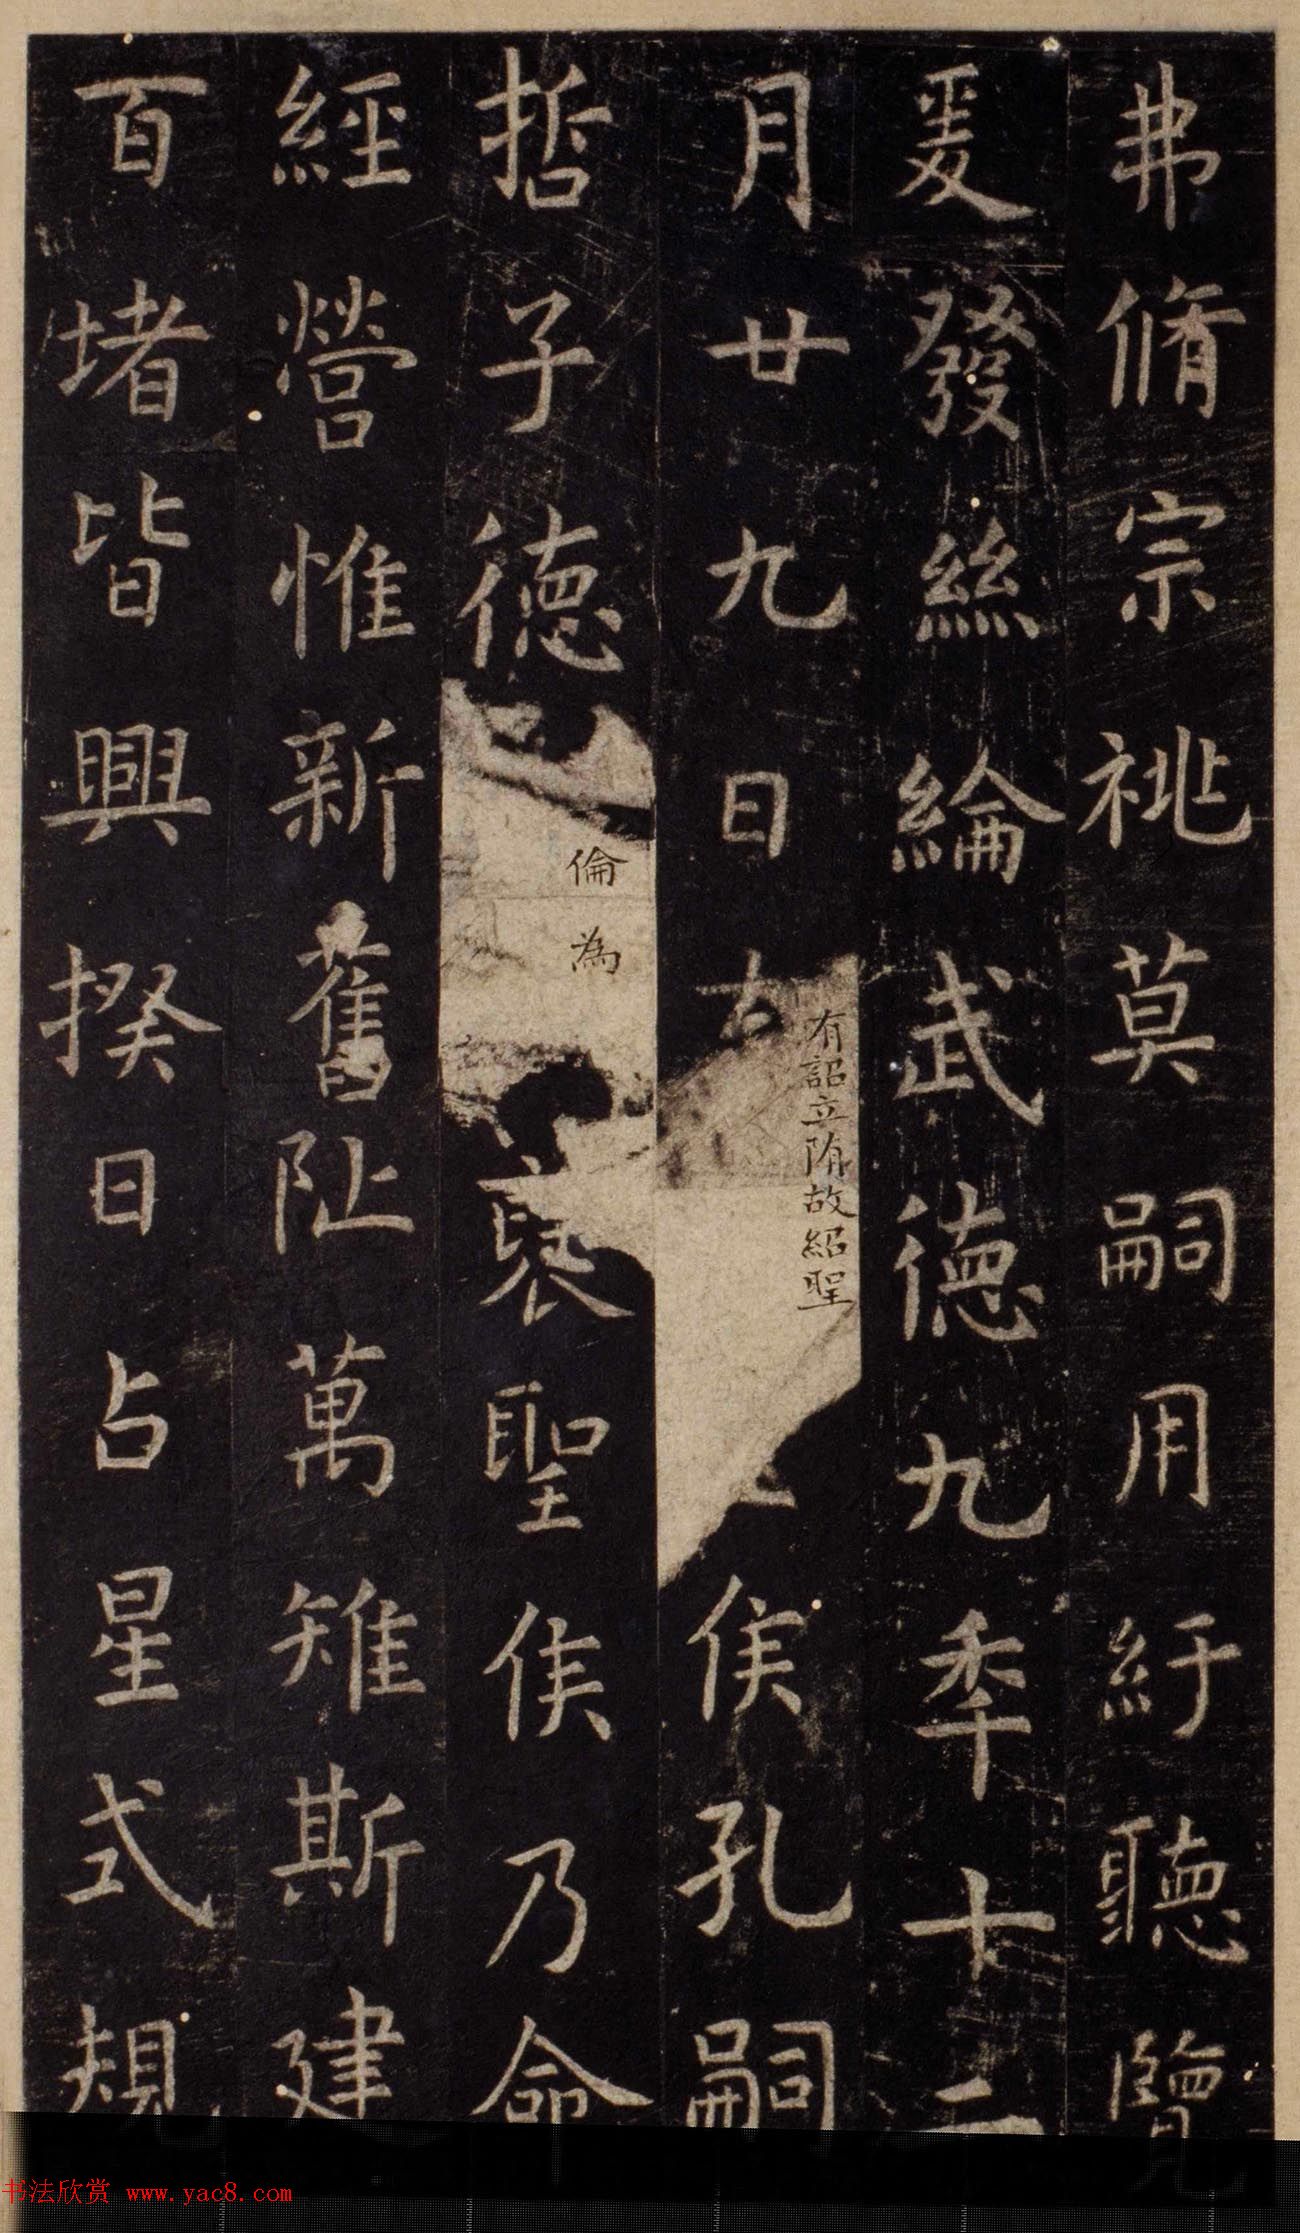 弗脩宗祧莫嗣用紆聽覽
爰發絲綸武德九年十二
月廿九日有詔立隋故紹聖侯孔嗣
哲子德倫為褒聖侯乃命
經營惟新舊阯萬雉斯建
百堵皆興揆日占星式規
书法欣赏 www.yac8.com